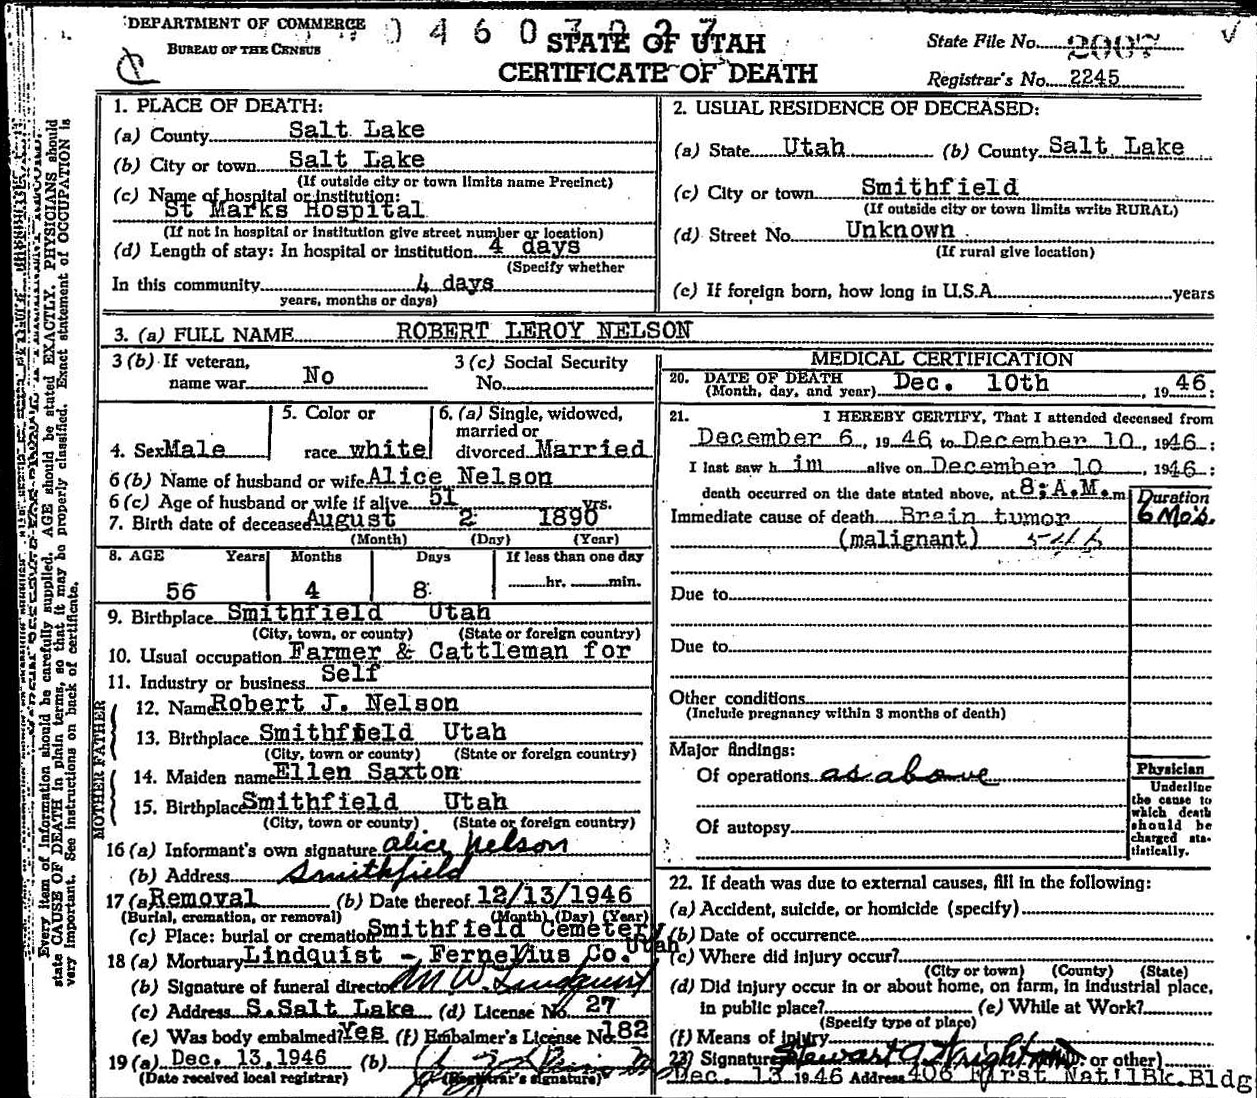 DEPARTMENT OF COMMERCE
BUREAU OF THE CENSUS
STATE OF UTAH
CERTIFICATE OF DEATH
State File No. 2007
Registrar's No. 2245
1. PLACE OF DEATH:
(a) County Salt Lake
(b) City or town Salt Lake
(If outside city or town limits name Precinct)
(c) Name of hospital or institution:
St Marks Hospital
(If not in hospital or institution give street number or location)
(d) Length of stay: In hospital or institution 4 days
(Specify whether
In this community 4 days
years, months or days)
2. USUAL RESIDENCE OF DECEASED:
(a) State Utah (b) County Salt Lake
(c) City or town Smithfield
(If outside city or town limits write RURAL)
(d) Street No. Unknown
(If rural give location)
(e) If foreign born, how long in U.S.A. years
3. (a) FULL NAME ROBERT LEROY NELSON
3 (b) If veteran,
name war No
3 (c) Social Security
No.
4. Sex Male
5. Color or
race white
6. (a) Single, widowed,
married or
divorced Married
6 (b) Name of husband or wife Alice Nelson
6 (c) Age of husband or wife if alive 51 yrs.
7. Birth date of deceased August 2 1890
(Month) (Day) (Year)
8. AGE Years Months Days If less than one day
56 4 8 hr. min.
9. Birthplace Smithfield Utah
(City, town, or county) (State or foreign country)
10. Usual occupation Farmer & Cattleman for
11. Industry or business Self
FATHER
12. Name Robert J. Nelson
13. Birthplace Smithfield Utah
(City, town or county) (State or foreign country)
MOTHER
14. Maiden name Ellen Saxton
15. Birthplace Smithfield Utah
(City, town or county) (State or foreign country)
16 (a) Informant's own signature Alice Nelson
(b) Address Smithfield
17 (a) Removal (b) Date thereof 12/13/1946
(Burial, cremation, or removal) (Month) (Day) (Year)
(c) Place: burial or cremation Smithfield Cemetery
Utah
18 (a) Mortuary Lindquist - Fernelius Co.
(b) Signature of funeral director M W Lindquist
(c) Address S.Salt Lake (d) License No. 27
(e) Was body embalmed? Yes (f) Embalmer's License No. 182
19 (a) Dec. 13,1946 (b)
(Date received local registrar) (Registrar's signature)
MEDICAL CERTIFICATION
20. DATE OF DEATH
(Month, day, and year) Dec. 10th , 19 46:
21. I HEREBY CERTIFY, That I attended deceased from
December 6, 19 46 to December 10, 1946:
I last saw h im alive on December 10, 1946:
death occurred on the date stated above, at 8:A.M. m
Duration
Immediate cause of death Brain tumor 6 Mo's.
(malignant) 54b
Due to
Due to
Other conditions
(Include pregnancy within 3 months of death)
Major findings:
Of operations as above
Of autopsy
Physician
Underline
the cause to
which death
should be
charged sta-
tistically.
22. If death was due to external causes, fill in the following:
(a) Accident, suicide, or homicide (specify)
(b) Date of occurrence
(c) Where did injury occur?
(City or town) (County) (State)
(d) Did injury occur in or about home, on farm, in industrial place,
in public place? (e) While at Work?
(Specify type of place)
(f) Means of injury
23) Signature Stewart A Wright M.D. or other)
Dec. 13 1946 Address 406 First Nat'lBk.Bldg
Every item of information should be carefully supplied. AGE should be stated EXACTLY. PHYSICIANS should
state CAUSE OF DEATH in plain terms, so that it may be properly classified. Exact statement of OCCUPATION is
very important. See instructions on back of certificate.